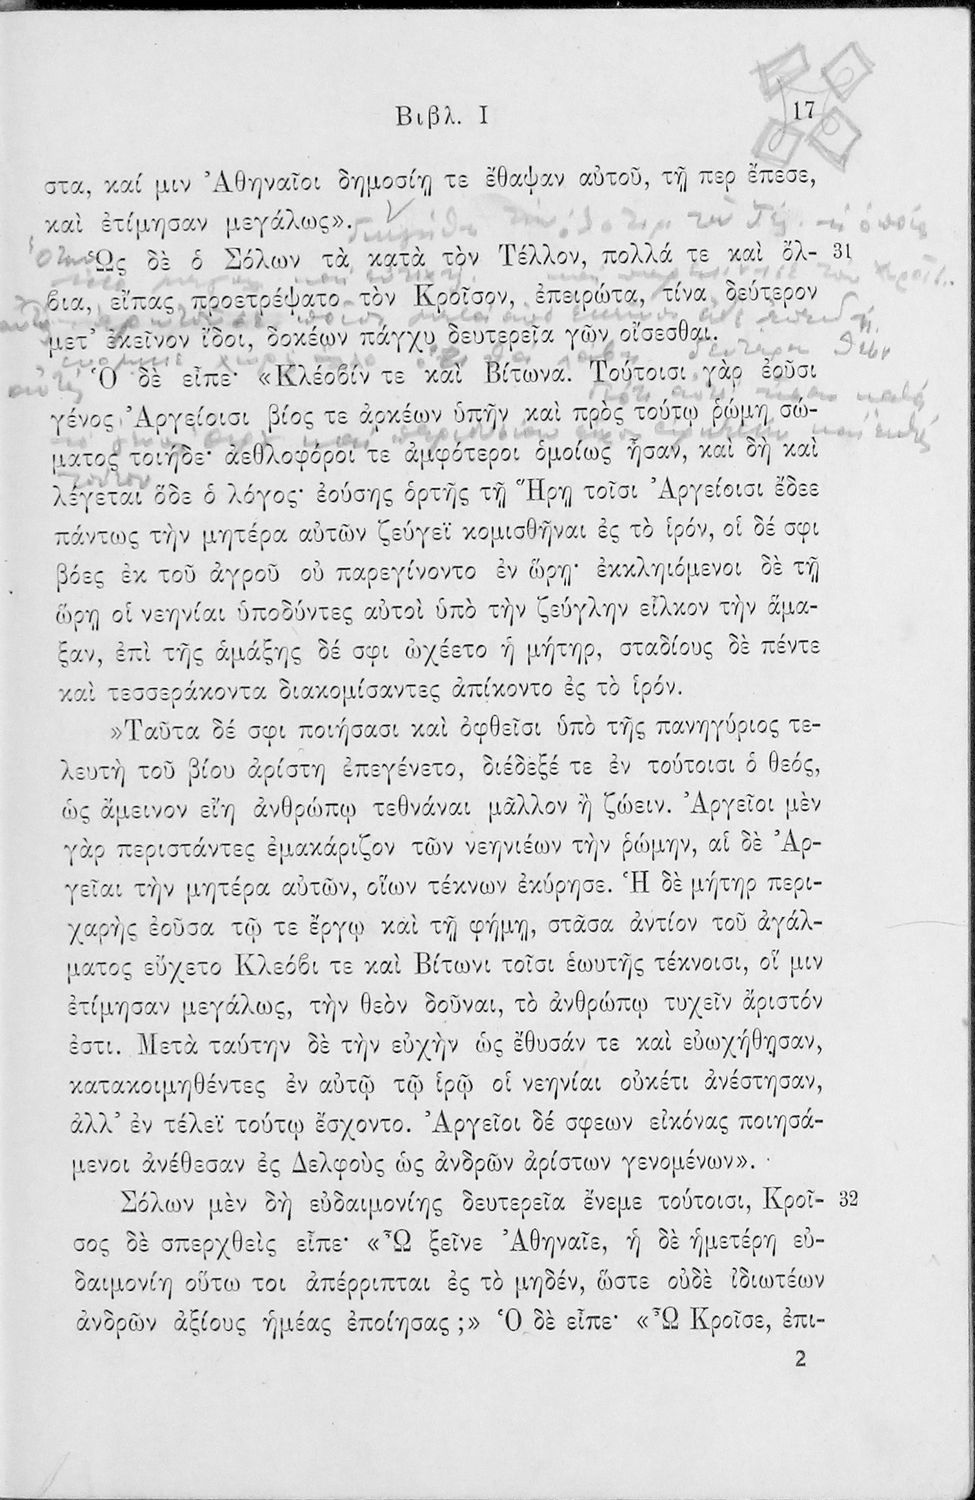 Βιβλ. Ι 17
στα, καί μιν Ἀθηναῖοι δημοσίῃ τε ἔθαψαν αὐτοῦ, τῇ περ ἔπεσε,
καὶ ἐτίμησαν μεγάλως».
Ὣς δὲ ὁ Σόλων τὰ κατὰ τὸν Τέλλον, πολλά τε καὶ ὄλ- 31
βια, εἴπας προετρέψατο τὸν Κροῖσον, ἐπειρώτα, τίνα δεύτερον
μετ’ ἐκεῖνον ἴδοι, δοκέων πάγχυ δευτερεῖα γῶν οἴσεσθαι.
Ὁ δὲ εἶπε· «Κλέοβίν τε καὶ Βίτωνα. Τούτοισι γὰρ ἐοῦσι
γένος Ἀργείοισι βίος τε ἀρκέων ὑπῆν καὶ πρὸς τούτῳ ῥώμη σώ-
ματος τοιήδε· ἀεθλοφόροι τε ἀμφότεροι ὁμοίως ἦσαν, καὶ δὴ καὶ
λέγεται ὅδε ὁ λόγος· ἐούσης ὁρτῆς τῇ Ἥρῃ τοῖσι Ἀργείοισι ἔδεε
πάντως τὴν μητέρα αὐτῶν ζεύγεϊ κομισθῆναι ἐς τὸ ἱρόν, οἱ δέ σφι
βόες ἐκ τοῦ ἀγροῦ οὐ παρεγίνοντο ἐν ὥρῃ· ἐκκληιόμενοι δὲ τῇ
ὥρῃ οἱ νεηνίαι ὑποδύντες αὐτοὶ ὑπὸ τὴν ζεύγλην εἷλκον τὴν ἅμα-
ξαν, ἐπὶ τῆς ἁμάξης δέ σφι ὠχέετο ἡ μήτηρ, σταδίους δὲ πέντε
καὶ τεσσεράκοντα διακομίσαντες ἀπίκοντο ἐς τὸ ἱρόν.
»Ταῦτα δέ σφι ποιήσασι καὶ ὀφθεῖσι ὑπὸ τῆς πανηγύριος τε-
λευτὴ τοῦ βίου ἀρίστη ἐπεγένετο, διέδεξέ τε ἐν τούτοισι ὁ θεός,
ὡς ἄμεινον εἴη ἀνθρώπῳ τεθνάναι μᾶλλον ἢ ζώειν. Ἀργεῖοι μὲν
γὰρ περιστάντες ἐμακάριζον τῶν νεηνιέων τὴν ῥώμην, αἱ δὲ Ἀρ-
γεῖαι τὴν μητέρα αὐτῶν, οἵων τέκνων ἐκύρησε. Ἡ δὲ μήτηρ περι-
χαρὴς ἐοῦσα τῷ τε ἔργῳ καὶ τῇ φήμῃ, στᾶσα ἀντίον τοῦ ἀγάλ-
ματος εὔχετο Κλεόβι τε καὶ Βίτωνι τοῖσι ἑωυτῆς τέκνοισι, οἵ μιν
ἐτίμησαν μεγάλως, τὴν θεὸν δοῦναι, τὸ ἀνθρώπῳ τυχεῖν ἄριστόν
ἐστι. Μετὰ ταύτην δὲ τὴν εὐχὴν ὡς ἔθυσάν τε καὶ εὐωχήθησαν,
κατακοιμηθέντες ἐν αὐτῷ τῷ ἱρῷ οἱ νεηνίαι οὐκέτι ἀνέστησαν,
ἀλλ’ ἐν τέλεϊ τούτῳ ἔσχοντο. Ἀργεῖοι δέ σφεων εἰκόνας ποιησά-
μενοι ἀνέθεσαν ἐς Δελφοὺς ὡς ἀνδρῶν ἀρίστων γενομένων».
Σόλων μὲν δὴ εὐδαιμονίης δευτερεῖα ἔνεμε τούτοισι, Κροῖ- 32
σος δὲ σπερχθεὶς εἶπε· «Ὦ ξεῖνε Ἀθηναῖε, ἡ δὲ ἡμετέρη εὐ-
δαιμονίη οὕτω τοι ἀπέρριπται ἐς τὸ μηδέν, ὥστε οὐδὲ ἰδιωτέων
ἀνδρῶν ἀξίους ἡμέας ἐποίησας ;» Ὁ δὲ εἶπε· «Ὦ Κροῖσε, ἐπι-
2